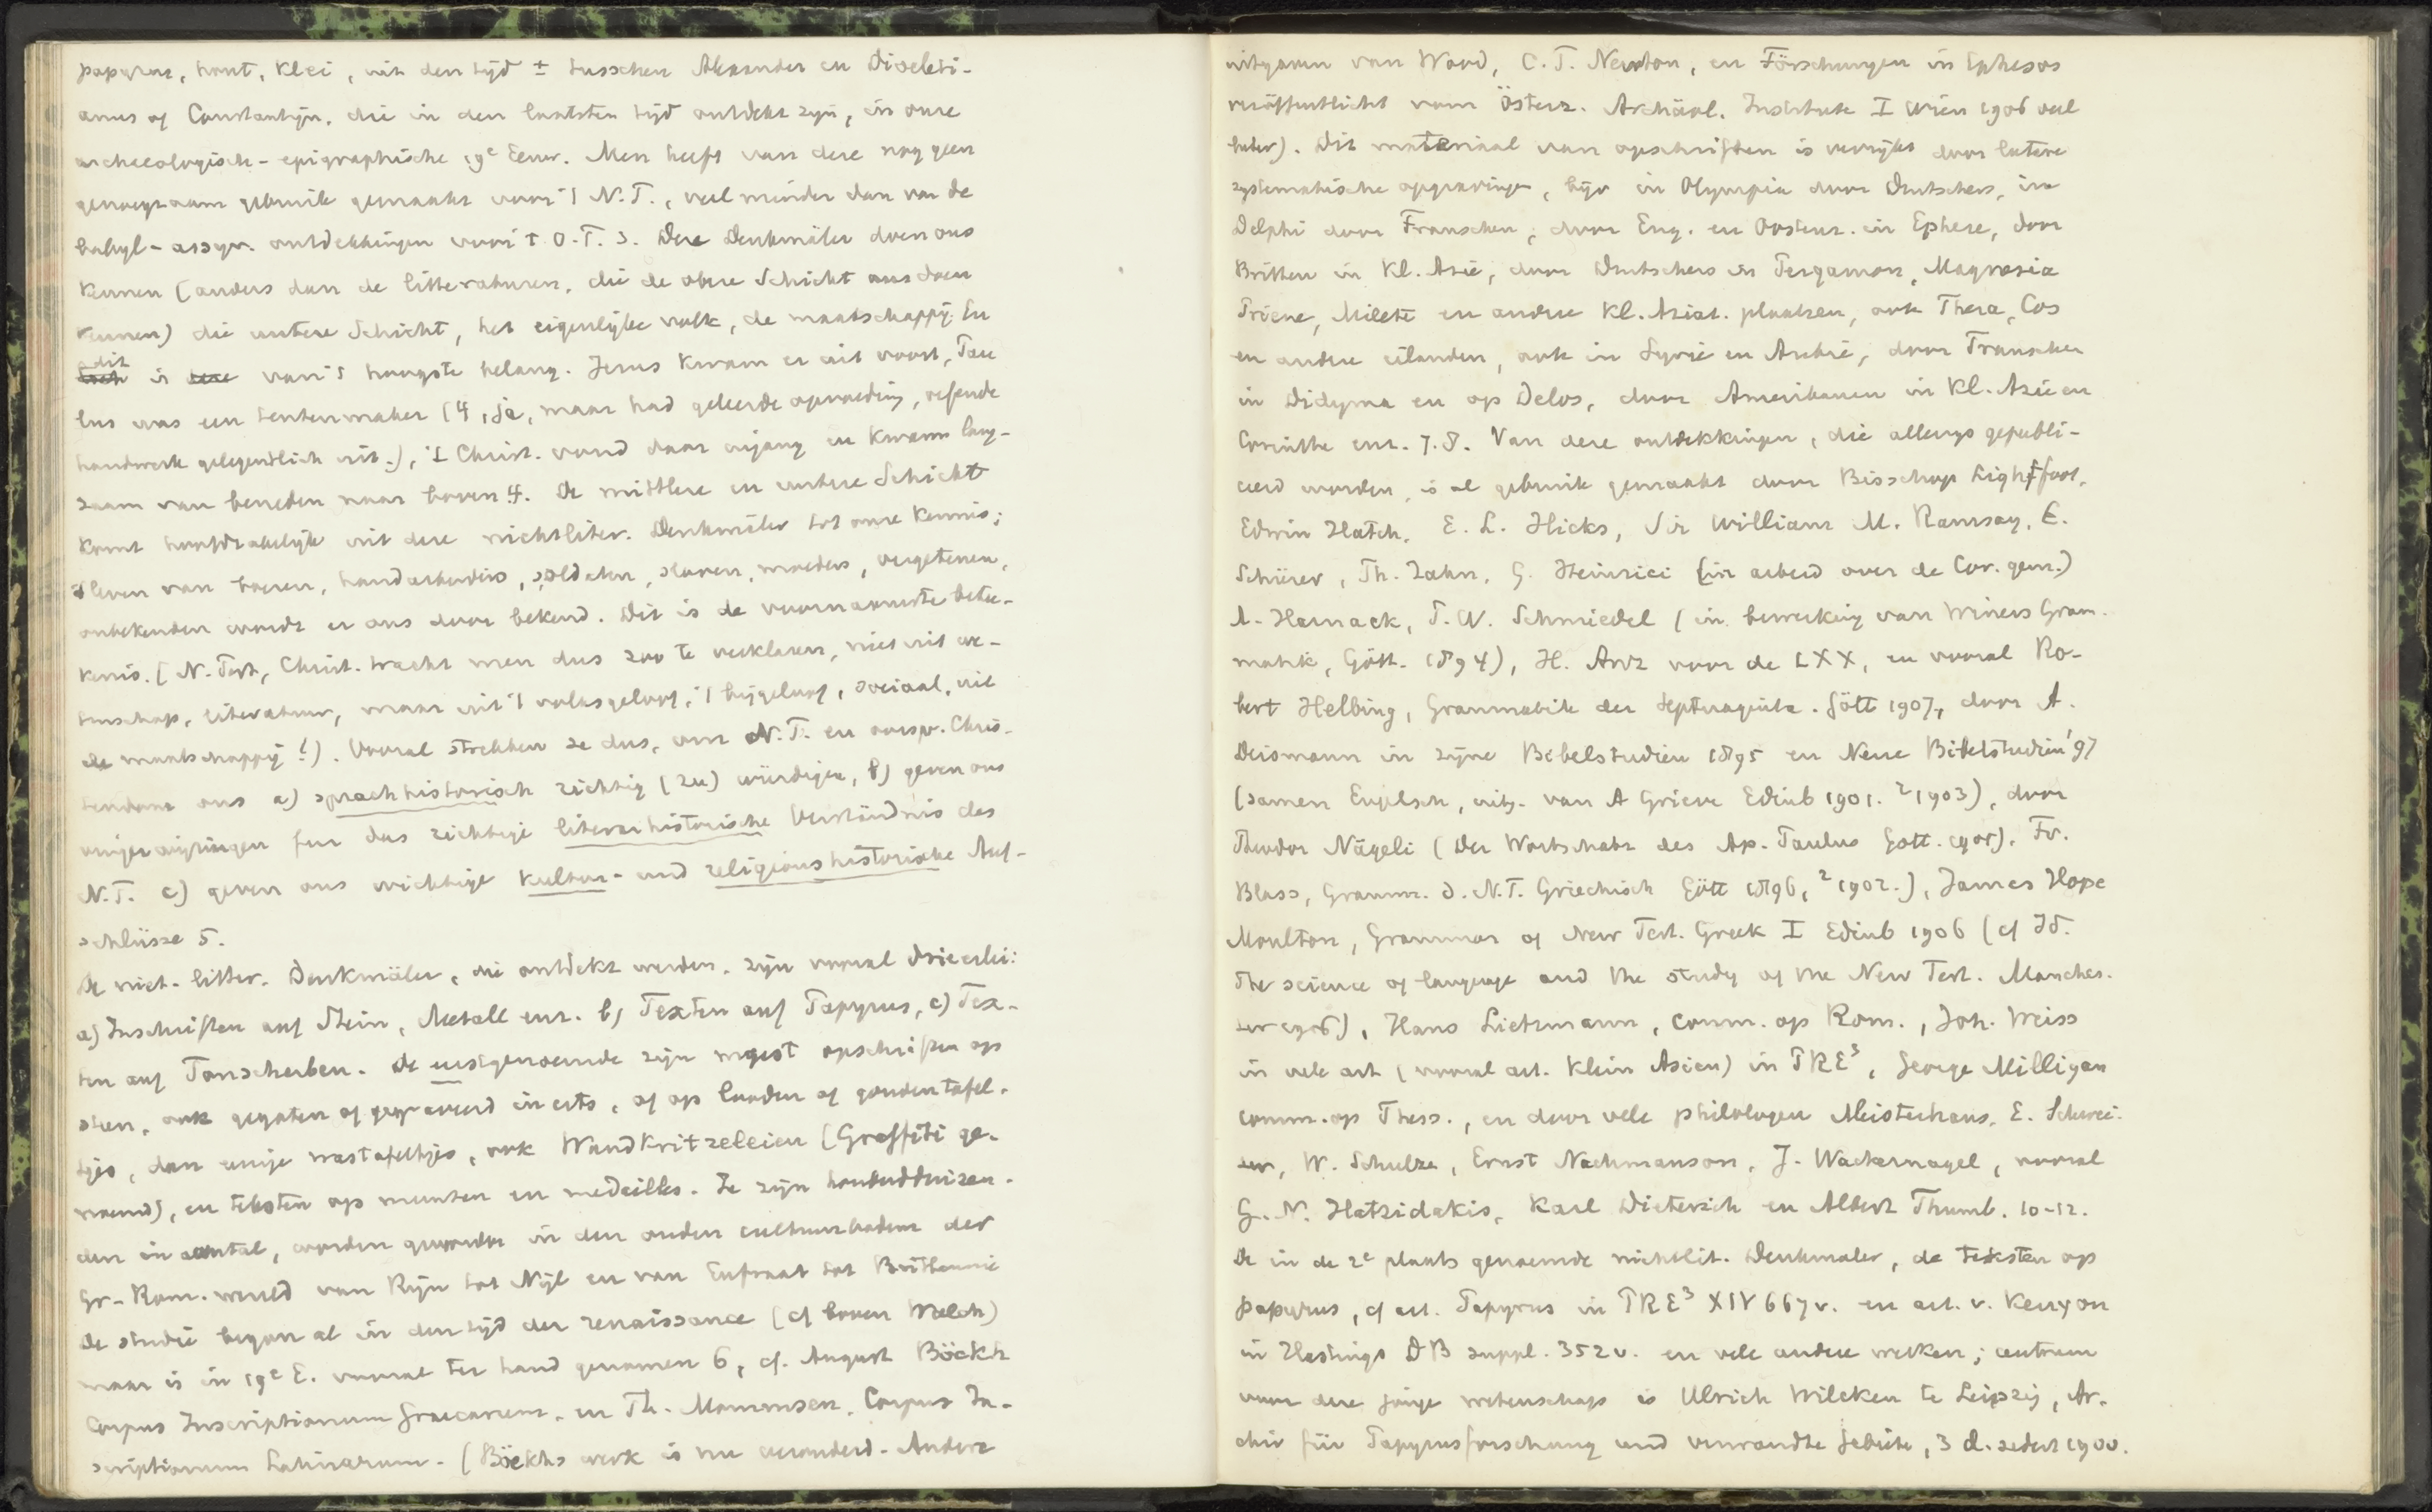 papyrus, hout, klei, uit den tijd ± tusschen Alexander en Diocleti-
anus of Constantijn, die in den laatsten tijd ontdekt zijn, in onze
archaeologisch-epigraphische 19e Eeuw. Men heeft van deze nog geen
genoegzaam gebruik gemaakt voor 't N.T., veel minder dan van de
babyl-assyr. ontdekkingen voor 't O.T. 3. Deze Denkmäler doen ons
kennen (anders dan de litteraturen, die de obere Schicht ons doen
kennen) die untere Schicht, het eigenlijke volk, de maatschappij. En
dit is van 't hoogste belang. Jezus kwam er uit voort, Pau
lus was een tentenmaker (4, ja, maar had geleerde opvoeding, oefende
handwerk gelegentlich uit.), 't Christ. vond daar ingang en kwam lang-
zaam van beneden naar boven 4. De mittlere en untere Schicht
komt hoofdzakelijk uit deze nichtliter. Denkmäler tot onze kennis;
't leven van boeren, handarbeiders, soldaten, slaven, moeders, vergetenen,
onbekenden wordt er ons door bekend. Dit is de voornaamste betee-
kenis. [N. Test, Christ. tracht men dus zoo te verklaren, niet uit we-
tenschap, literatuur, maar uit 't volksgeloof, 't bijgeloof, sociaal, uit
de maatschappij!). Vooral strekken ze dus, om N.T. en oorspr. Chris-
tendom ons a) sprachhistorisch richtig (zu) würdigen, b) geven ons
vingerwijzingen fur das richtige literarhistorische Verständnis des
N.T. c) geven ons wichtige kultur- und religionshistorische Auf-
schlüsse 5.
De niet-litter. Denkmäler, die ontdekt werden, zijn vooral drieerlei:
a) Inschriften auf Stein, Metall enz. b) Texten auf Papyrus, c) Tex-
ten auf Tonscherben. De eerstgenoemde zijn meest opschriften op
steen, ook gegoten of gegraveerd in erts, of op looden of gouden tafel-
tjes, dan enige wastafeltjes, ook Wandkritzeleien (Graffiti ge-
noemd), en teksten op munten en medailles. Ze zijn honderdduizen-
den in aantal, worden gevonden in den ouden cultuurbodem der
Gr-Rom. wereld van Rijn tot Nijl en van Eufraat tot Brittannië
De studie begon al in den tijd der renaissance (cf boven Welch)
maar is in 19e E. vooral ter hand genomen 6, cf. August Böckh
Corpus Inscriptionum Graecarum, en Th. Mommsen, Corpus In-
scriptionum Latinarum. (Böckhs werk is nu veranderd. Andere
uitgaven van Wood, C.T. Newton, en Förschungen in Ephesos
veröffentlicht vom Österr. Archäol. Institute I Wien 1906 veel
beter). Dit materiaal van opschriften is verrijkt door latere
systematische opgravingen, bijv in Olympia door Duitschers, in
Delphi door Franschen, door Eng. en Oostenr. in Ephese, door
Britten in Kl. Azie, door Duitschers in Pergamon, Magnesia
Priene, Milete en andere Kl. Aziat. plaatsen, ook Thera, Cos
en andere eilanden, ook in Syrië en Arabië, door Franschen
in Didyma en op Delos, door Amerikanen in Kl. Azië en
Corinthe enz. 7.8. Van deze ontdekkingen, die allengs gepubli-
ceerd worden, is al gebruik gemaakt door Bisschop Lightfoot,
Edwin Hatch, E. L. Hicks, Sir William M. Ramsay, E.
Schürer, Th. Zahn, G. Heinrici (in arbeid over de Cor. gem.)
A. Harnack, P. W. Schmiedel (in bewerking van Winers Gram-
matik, Gött. 1894), H. Anz voor de LXX, en vooral Ro-
bert Helbing, Grammatik der Septuaginta. Gött 1907, door A.
Deismann in zijne Bibelstudien 1895 en Neue Bibelstudien '97
(samen Engelsch, uitg. van A Grieve Edinb 1901. ²1903), door
Theodor Nägeli (Der Wortschatz des Ap. Paulus Gött. 1905), Fr.
Blass, Gramm. d. N.T. Griechisch Gött 1896, ²1902.), James Hope
Moulton, Grammar of New Test. Greek I Edinb 1906 (cf Id.
The science of language and the study of the New Test. Manches-
ter 1906), Hans Lietzmann, comm. op Rom., Joh. Weiss
in vele art (vooral art. Klein Asien) in PRE³, George Milligan
comm. op Thess., en door vele philologen Meisterhans, E. Schwei-
zer, W. Schulze, Ernst Nachmanson, J. Wackernagel, vooral
G. N. Hatzidakis, Karl Dieterich en Albert Thumb. 10-12.
De in de 2e plaats genoemde nichtlit. Denkmaler, de teksten op
papyrus, cf art. Papyrus in PRE³ XIV 667v. en art. v. Kenyon
in Hastings DB suppl. 352v. en vele andere werken; centrum
voor deze jonge wetenschap is Ulrich Wilcken te Leipzig, Ar-
chiv für Papyrusforschung und verwandte Gebiete, 3 d. sedert 1900.